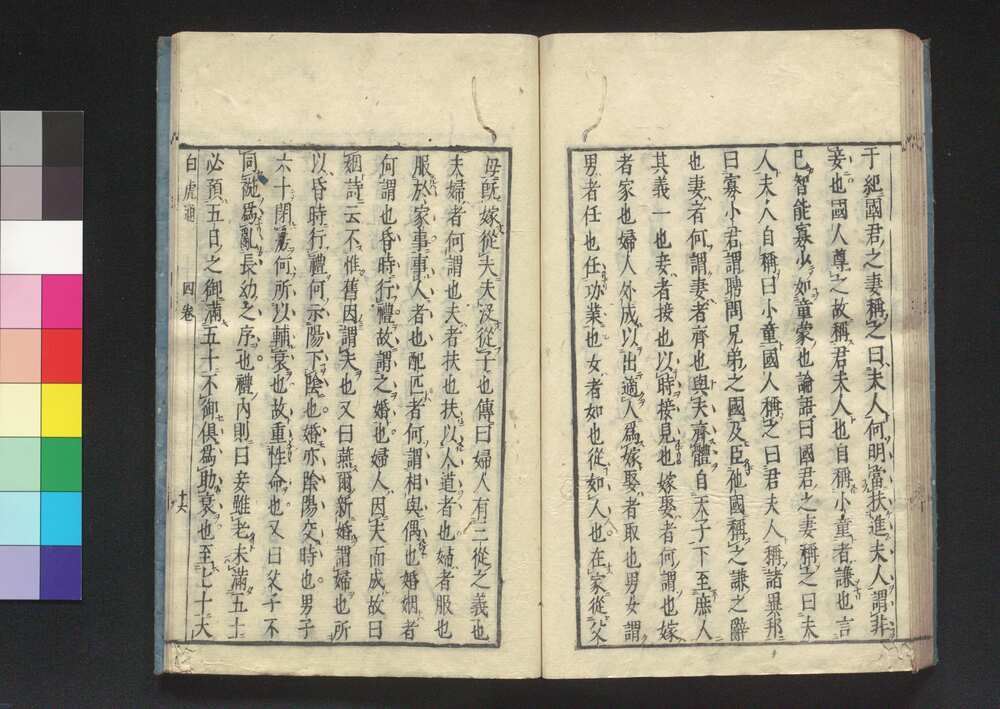 于紀國君之妻稱之曰夫人何明當扶進夫人謂非
妾也國人尊之故稱君夫人也自稱小童者謙也言
已智能寡少如童蒙也論語曰國君之妻稱之曰夫
人夫人自稱曰小童國人稱之曰君夫人稱諸異邦
曰寡小君謂聘問兄弟之國及臣他國稱之謙之辭
也妻者何謂妻者齊也與夫齊體自天子下至庶人
其義一也妾者接也以時接見也嫁娶者何謂也嫁
者家也婦人外成以出適人爲嫁娶者取也男女謂
男者任也任功業也女者如也從如人也在家從父
母既嫁從夫夫沒從子也傳曰婦人有三從之義也
夫婦者何謂也夫者扶也扶以人道者也婦者服也
服於家事事人者也配匹者何謂相與偶也婚姻者
何謂也昏時行禮故謂之婚也婦人因夫而成故曰
姻詩云不惟舊因謂夫也又曰燕爾新婚謂婦也所
以昏時行禮何示陽下陰也婚亦陰陽交時也男子
六十閉房何所以輔衰也故重性命也又曰父子不
同 爲亂長幼之序也禮內則曰妾雖老未滿五十
必預五日之御滿五十不御俱爲助衰也至七十大
白虎通 四卷 十六